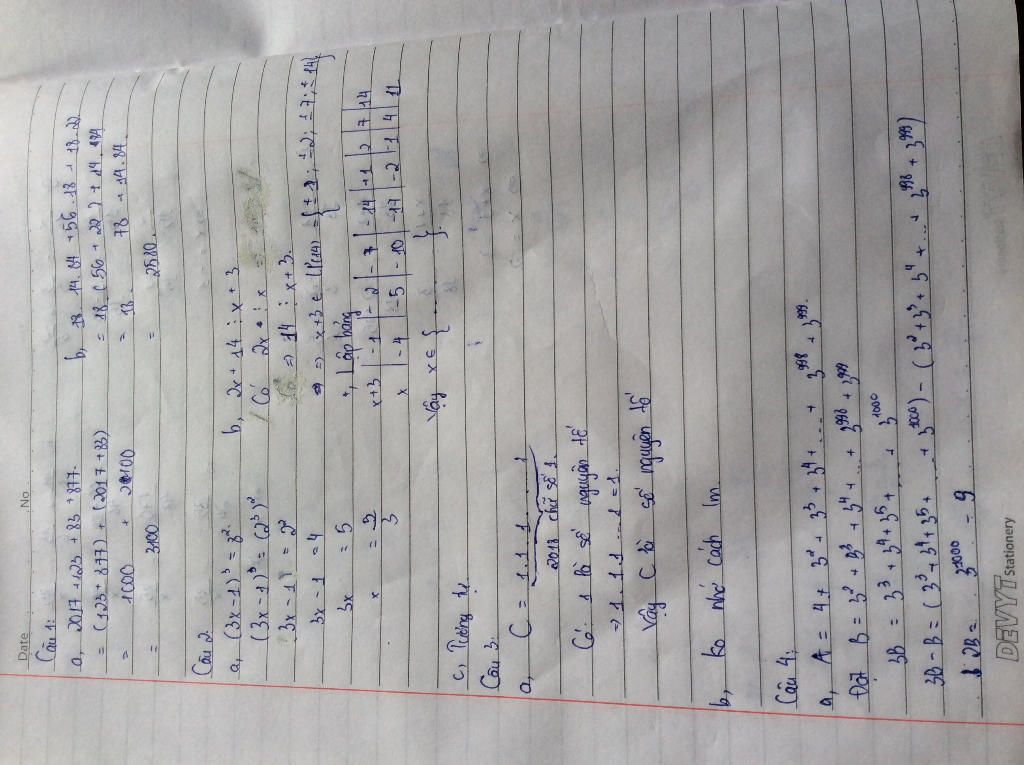 Date No.
Câu 1:
a, 2017 + 123 + 83 + 877.
= (123 + 877) + (2017 + 83)
= 1000 + 2100
= 3100
b, 18. 14. 84 + 56 . 18 + 18. 22
= 18 (56 + 22) + 14. 184
= 18. 78 + 14. 84.
= 2580.
Câu 2
a, (3x - 1)³ = 8².
(3x - 1)³ = (2³)²
3x - 1 = 2²
3x - 1 = 4
3x = 5
x = 5/3
b, 2x + 14 ⋮ x + 3
Có 2x ⋮ x
=> 14 ⋮ x + 3.
=> x + 3 ∈ Ư(14) = { ± 1 ; ± 2 ; ± 7 ; ± 14 }
+, Lập bảng
x + 3 | -1 | -2 | -7 | -14 | +1 | 2 | 7 | 14
x | -4 | -5 | -10 | -17 | -2 | -1 | 4 | 11
Vậy x ∈ { ........ }.
c, Tương tự
Câu 3.
a, C = 1. 1. 1. ..... 1
2018 chữ số 1.
Có: 1 là số nguyên tố
=> 1 . 1. 1 ... 1 = 1.
Vậy C là số nguyên tố
b, ko nhớ cách lm
Câu 4:
a, A = 4 + 3² + 3³ + 3⁴ + ... + 3⁹⁹⁸ + 3⁹⁹⁹.
Đặt B = 3² + 3³ + 3⁴ + .. + 3⁹⁹⁸ + 3⁹⁹⁹
3B = 3³ + 3⁴ + 3⁵ + ... + 3¹⁰⁰⁰
3B - B = (3³ + 3⁴ + 3⁵ + ... + 3¹⁰⁰⁰) - (3² + 3³ + 3⁴ + ... + 3⁹⁹⁸ + 3⁹⁹⁹)
2B = 3¹⁰⁰⁰ - 9
DEVYT Stationery